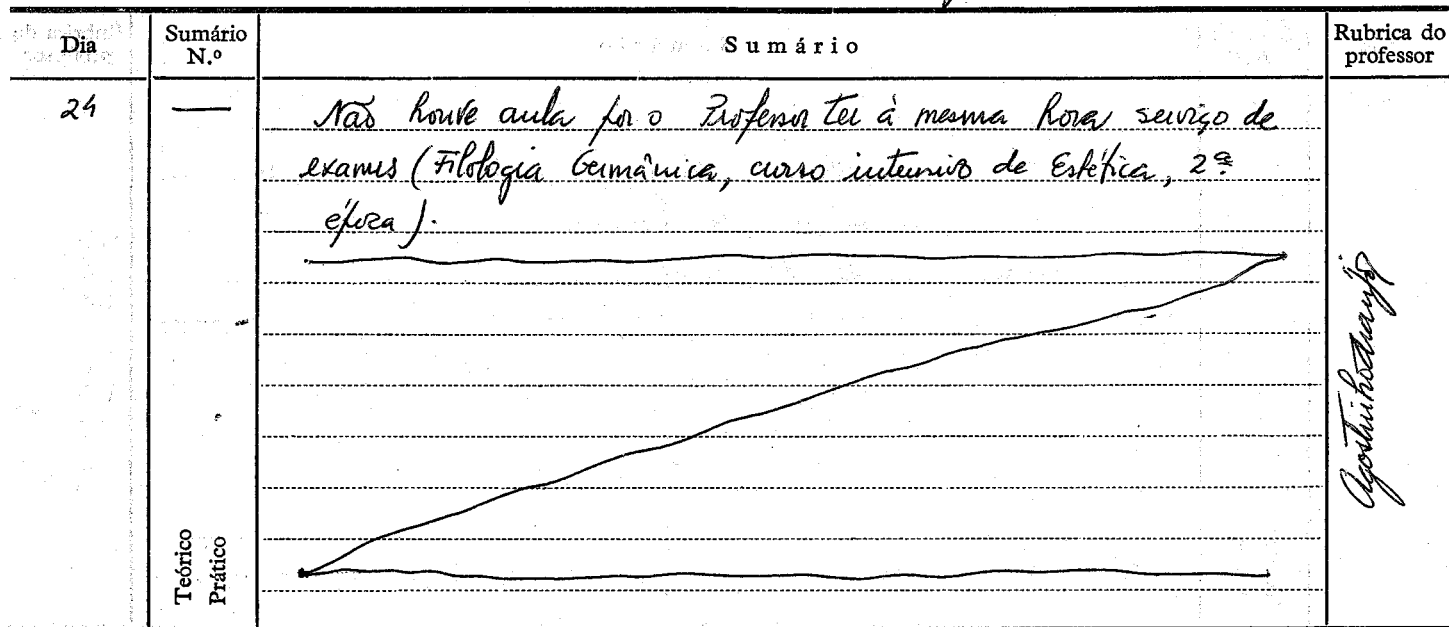 Dia
Sumário N.º
Sumário
Rubrica do professor
24
—
Não houve aula por o Professor ter à mesma hora serviço de
exames (Filologia Germânica, curso intensivo de Estética, 2ª
época).
Teórico
Prático